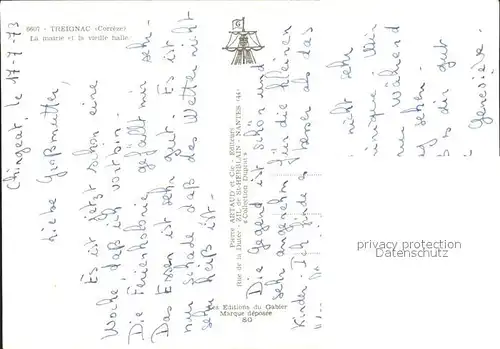 6607 - TREIGNAC (Corrèze)
La mairie et la vieille halle
Chingeat le 17-7-73
Liebe Großmutter,
Es ist jetzt schon eine
Woche, daß ich vorbin.
Die Ferienkolonie gefällt mir sehr.
Das Essen ist sehr gut. Es ist
nur schade daß das Wetter nicht
sehr heiß ist.
Die Gegend ist schön und
sehr angenehm für die kleinen
Kinder. Ich finde es besser als das
Pierre ARTAUD et Cie - Éditeurs
Rue de la Dutée - Z.I.L. de St-HERBLAIN - NANTES (44)
« Collection Duguay »
Les Editions du Gabier
Marque déposée
SG
nicht sehr
Während
sehen.
dir gut
Geneviève.
privacy protection
Datenschutz